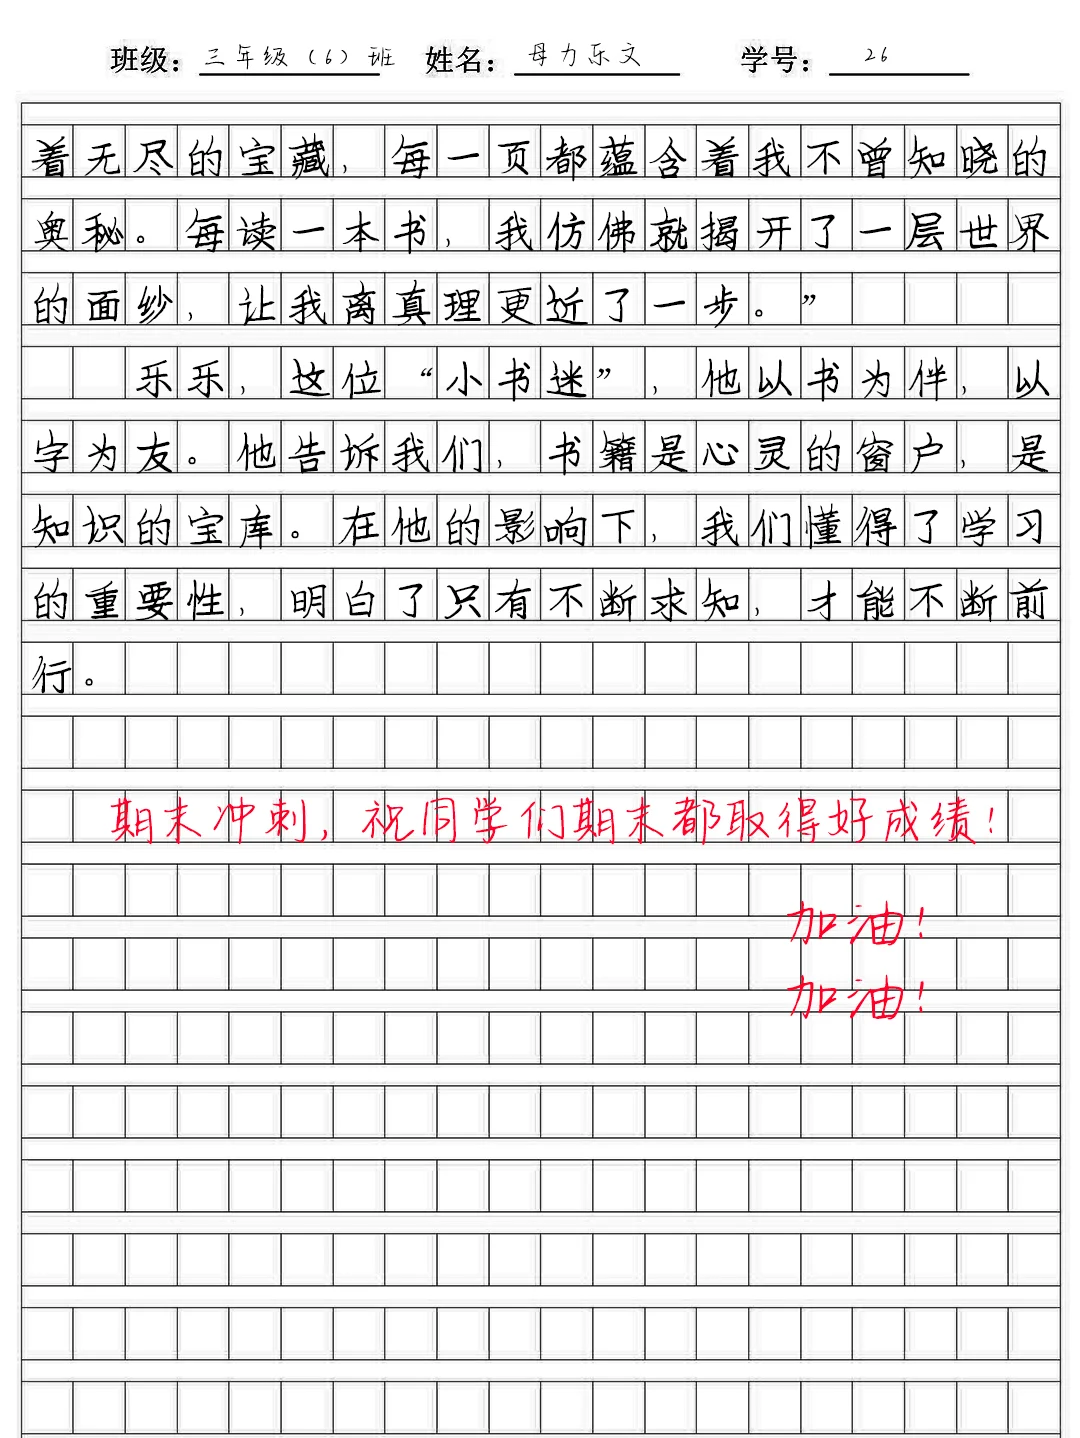 班级：三年级（6）班 姓名：母力乐文 学号：26
着无尽的宝藏，每一页都蕴含着我不曾知晓的
奥秘。每读一本书，我仿佛就揭开了一层世界
的面纱，让我离真理更近了一步。”
乐乐，这位“小书迷”，他以书为伴，以
字为友。他告诉我们，书籍是心灵的窗户，是
知识的宝库。在他的影响下，我们懂得了学习
的重要性，明白了只有不断求知，才能不断前
行。
期末冲刺，祝同学们期末都取得好成绩！
加油！
加油！